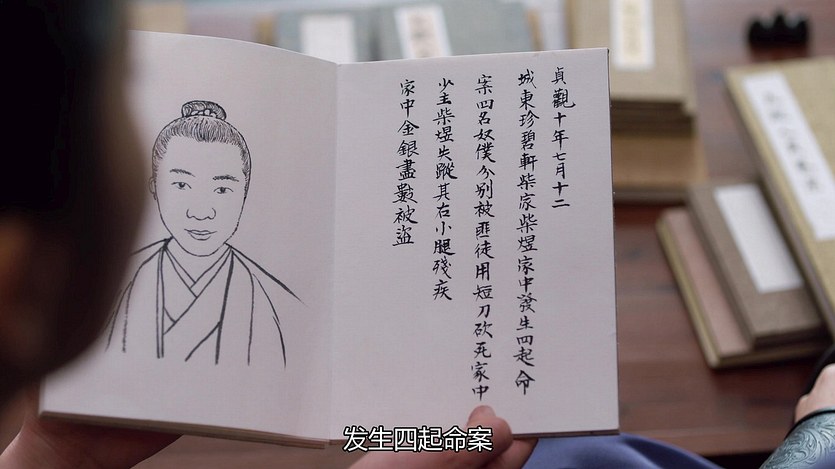 貞觀十年七月十二
城東珍碧軒柴家柴煜家中發生四起命
案四名奴僕分別被匪徒用短刀砍死家中
少主柴煜失蹤其右小腿殘疾
家中金銀盡數被盜
发生四起命案